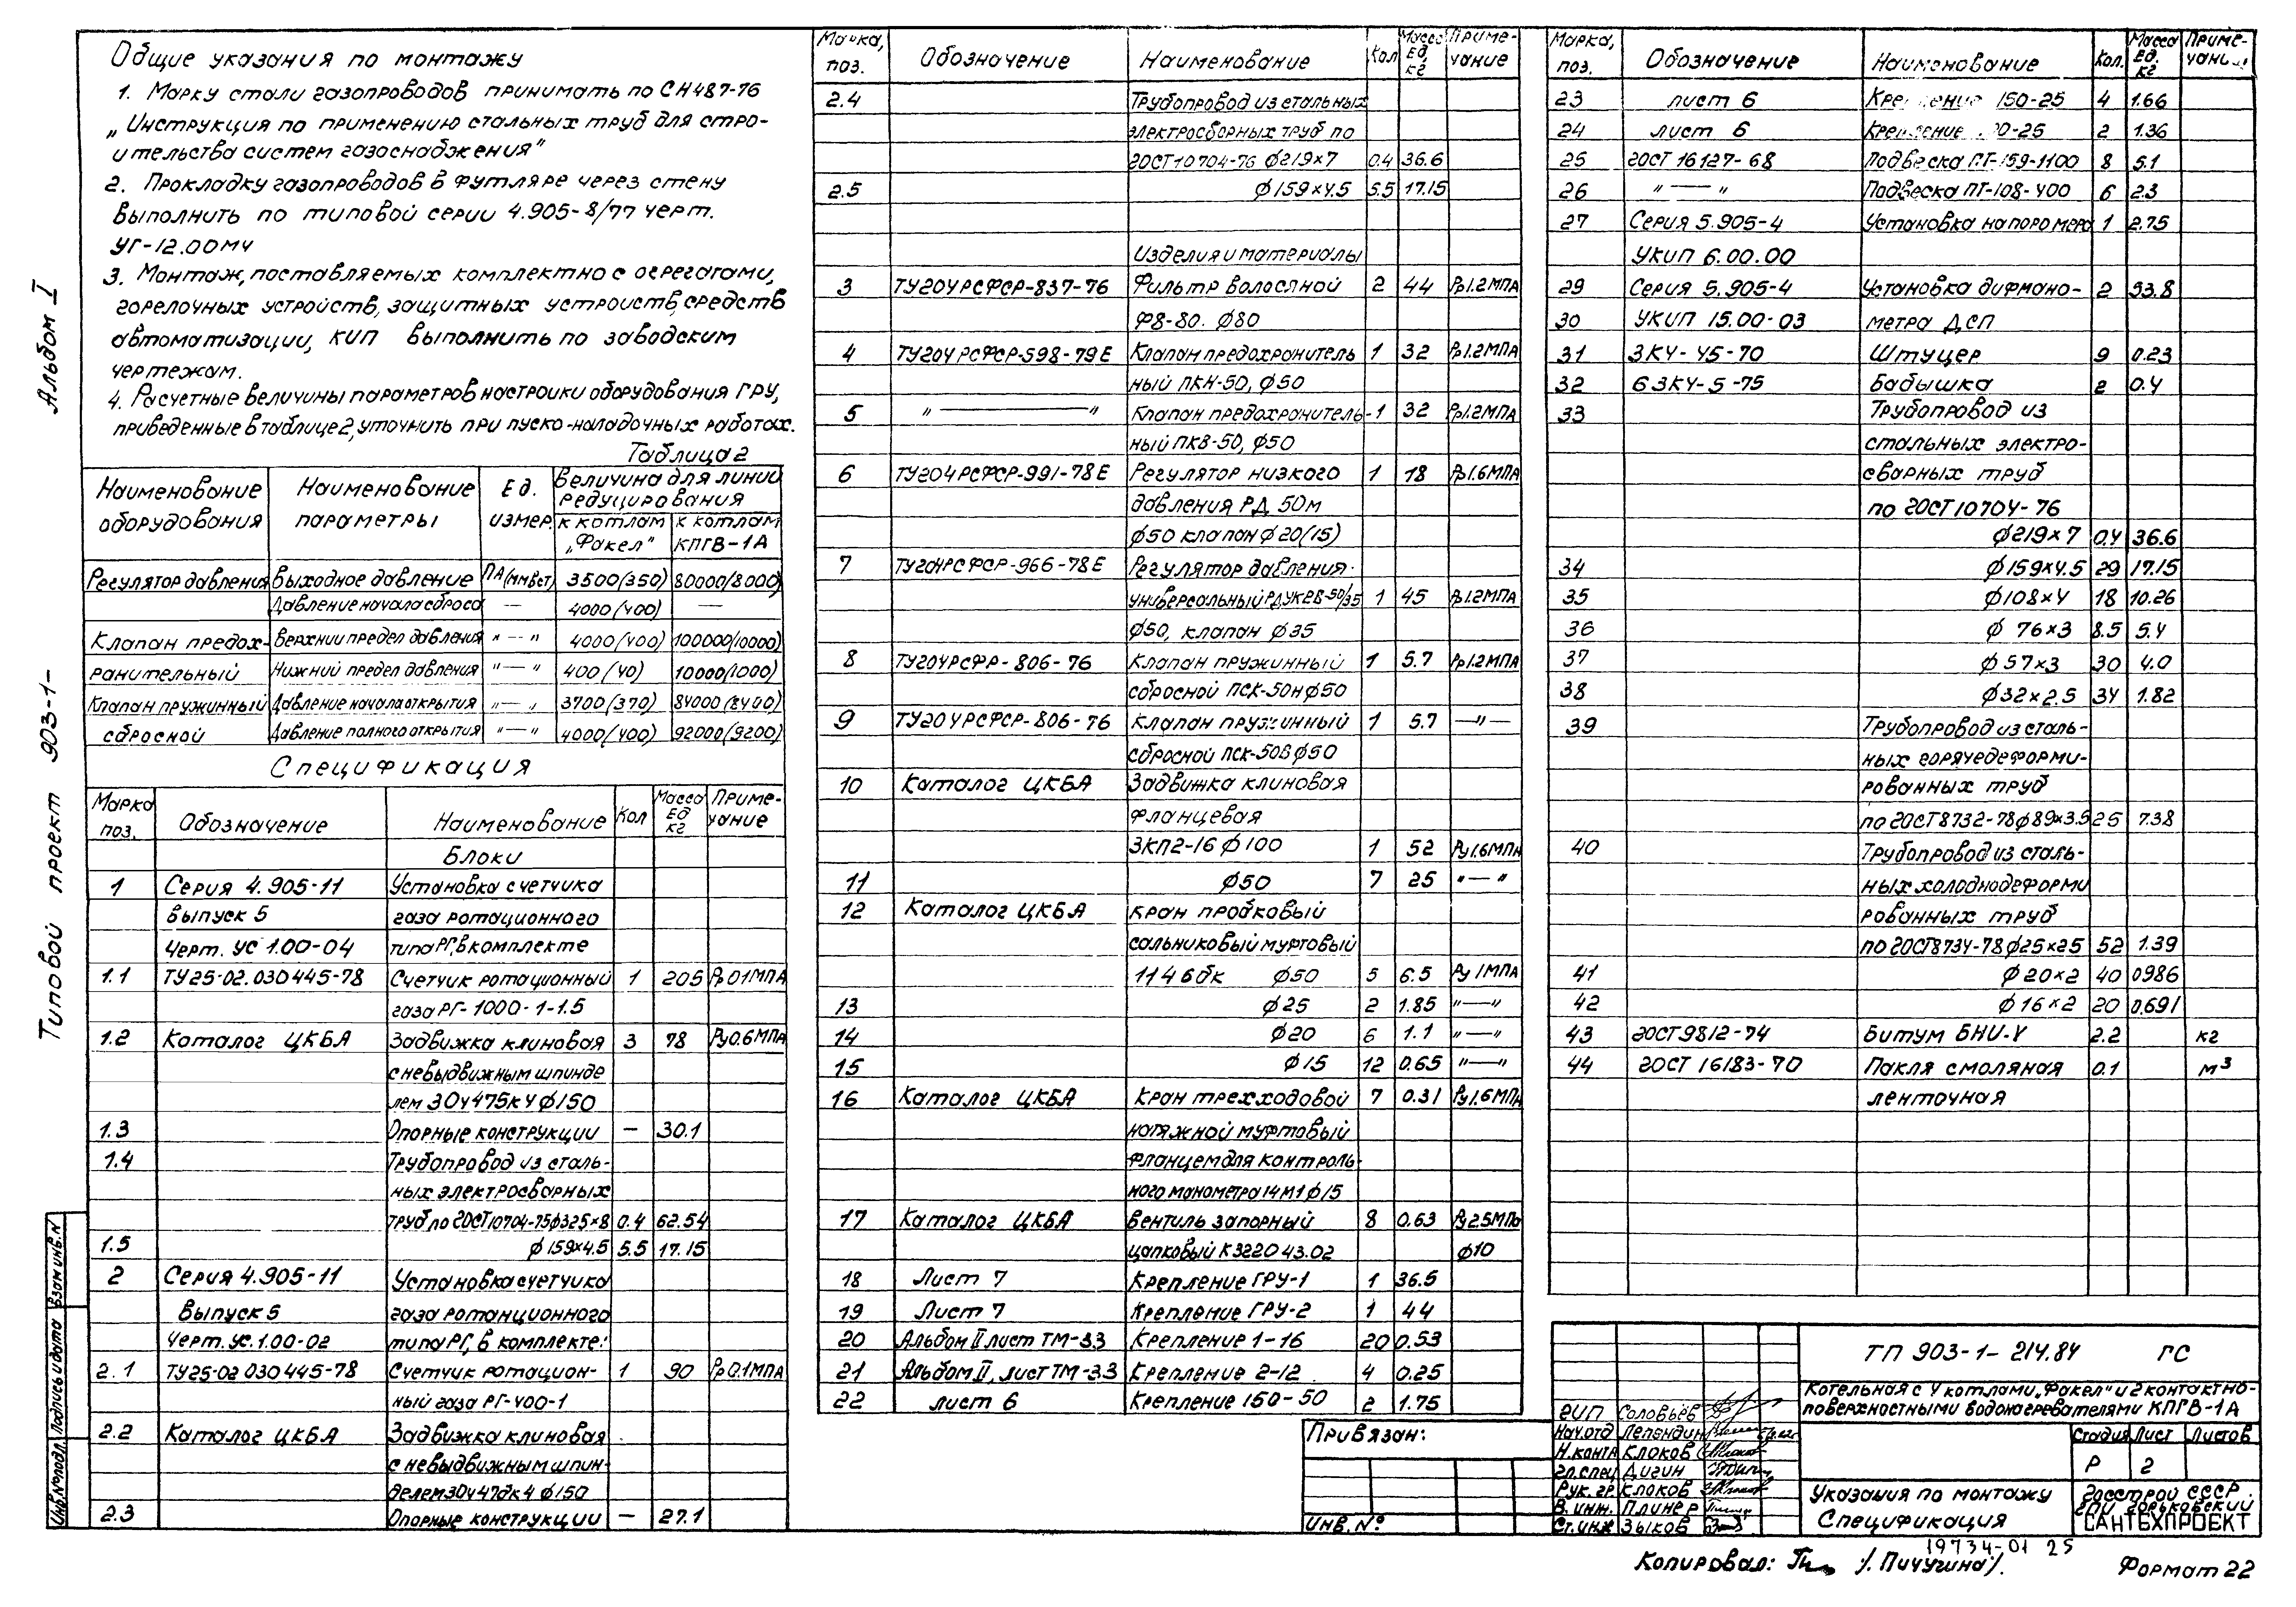 Общие указания по монтажу
1. Марку стали газопроводов принимать по СН487-76
„Инструкция по применению стальных труб для стро-
ительства систем газоснабжения"
2. Прокладку газопроводов в футляре через стену
выполнить по типовой серии 4.905-8/77 черт.
УГ-12.00МЧ
3. Монтаж, поставляемых комплектно с агрегатами,
горелочных устройств, защитных устройств, средств
автоматизации, КИП выполнить по заводским
чертежам.
4. Расчетные величины параметров настройки оборудования ГРУ,
приведенные в таблице 2, уточнить при пуско-наладочных работах.
Таблица 2
Наименование оборудования | Наименование параметры | Ед. измер. | Величина для линии редуцирования
к котлам „Факел" | к котлам КПГВ-1А
Регулятор давления | Выходное давление | ПА(ммвст) | 3500(350) | 80000(8000)
Давление начала сброса | — | 4000(400) | —
Клапан предох- | Верхний предел давления | "—" | 4000(400) | 100000(10000)
ранительный | Нижний предел давления | "—" | 400(40) | 10000(1000)
Клапан пружинный | Давление начала открытия | "—" | 3700(370) | 84000(8400)
сбросной | Давление полного открытия | "—" | 4000(400) | 92000(9200)
Спецификация
Марка поз. | Обозначение | Наименование | Кол | Масса Ед кг | Приме-чание
Блоки
1 | Серия 4.905-11 | Установка счетчика
выпуск 5 | газа ротационного
Черт. УС 1.00-04 | типа РГ, в комплекте
1.1 | ТУ25-02.030445-78 | Счетчик ротационный | 1 | 205 | Рр 0.1МПА
газа РГ-1000-1-1.5
1.2 | Каталог ЦКБА | Задвижка клиновая | 3 | 78 | Ру0.6МПА
с невыдвижным шпинде
лем 30ч475к4 ф150
1.3 | Опорные конструкции | — | 30.1
1.4 | Трубопровод из сталь-
ных электросварных
труб по ГОСТ10704-75ф325×8 | 0.4 | 62.54
1.5 | ф159×4.5 | 5.5 | 17.15
2 | Серия 4.905-11 | Установка счетчика
Выпуск 5 | газа ротанционного
Черт. УС.1.00-02 | типа РГ, в комплекте:
2.1 | ТУ25-02 030445-78 | Счетчик ротацион- | 1 | 90 | Рр 0.1МПА
ный газа РГ-400-1
2.2 | Каталог ЦКБА | Задвижка клиновая
с невыдвижным шпин-
делем30ч47дк4 ф150
2.3 | Опорные конструкции | — | 27.1
Марка, поз. | Обозначение | Наименование | Кол | Масса Ед, кг | Приме-чание
2.4 | Трубопровод из стальных
электросборных труб по
ГОСТ10704-76 ф219×7 | 0.4 | 36.6
2.5 | ф159×4.5 | 5.5 | 17.15
Изделия и материалы
3 | ТУ204РСФСР-837-76 | Фильтр волосяной | 2 | 44 | Рр1.2МПА
Ф8-80. ф80
4 | ТУ204РСФСР-598-79Е | Клапан предохранитель | 1 | 32 | Рр1.2МПА
ный ПКН-50, ф50
5 | "—" | Клапан предохранитель- | 1 | 32 | Рр1.2МПА
ный ПКВ-50, ф50
6 | ТУ204РСФСР-991-78Е | Регулятор низкого | 1 | 18 | Рр1.6МПА
давления РД 50м
ф50 клапан ф20(15)
7 | ТУ204РСФСР-966-78Е | Регулятор давления
универсальный РДУК2В-50/35 | 1 | 45 | Рр1.2МПА
ф50, клапан ф35
8 | ТУ204РСФР-806-76 | Клапан пружинный | 1 | 5.7 | Рр1.2МПА
сбросной ПСК-50Нф50
9 | ТУ204РСФСР-806-76 | Клапан пружинный | 1 | 5.7 | —"—
сбросной ПСК-50Вф50
10 | Каталог ЦКБА | Задвижка клиновая
фланцевая
ЗКЛ2-16 ф100 | 1 | 52 | Ру1.6МПА
11 | ф50 | 7 | 25 | "—"
12 | Каталог ЦКБА | Кран пробковый
сальниковый муфтовый
11ч6бк ф50 | 5 | 6.5 | Ру 1МПА
13 | ф25 | 2 | 1.85 | "—"
14 | ф20 | 6 | 1.1 | "—"
15 | ф15 | 12 | 0.65 | "—"
16 | Каталог ЦКБА | Кран трехходовой | 7 | 0.31 | Ру1.6МПА
натяжной муфтовый
фланцем для контроль-
ного манометра 14М1 ф15
17 | Каталог ЦКБА | Вентиль запорный | 8 | 0.63 | Ру2.5МПа
цапковый КЗ220 43.02 | ф10
18 | Лист 7 | Крепление ГРУ-1 | 1 | 36.5
19 | Лист 7 | Крепление ГРУ-2 | 1 | 44
20 | Альбом II лист ТМ-33 | Крепление 1-16 | 20 | 0.53
21 | Альбом II, лист ТМ-33 | Крепление 2-12 | 4 | 0.25
22 | лист 6 | Крепление 150-50 | 2 | 1.75
Марка, поз. | Обозначение | Наименование | Кол. | Масса Ед. кг | Приме-
23 | лист 6 | 150-25 | 4 | 1.66
24 | лист 6 | 2 | 1.36
25 | ГОСТ 16127-68 | Подвеска ПГ-159-1100 | 8 | 5.1
26 | "—" | Подвеска ПГ-108-400 | 6 | 2.3
27 | Серия 5.905-4 | Установка напоромера | 1 | 2.75
УКИП 6.00.00
29 | Серия 5.905-4 | Установка дифмано- | 2 | 93.8
30 | УКИП 15.00-03 | метра ДСП
31 | ЗК4-45-70 | Штуцер | 9 | 0.23
32 | 63К4-5-75 | Бабышка | 2 | 0.4
33 | Трубопровод из
стальных электро-
сварных труб
по ГОСТ10704-76
ф219×7 | 0.4 | 36.6
34 | ф159×4.5 | 29 | 17.15
35 | ф108×4 | 18 | 10.26
36 | ф 76×3 | 8.5 | 5.4
37 | ф57×3 | 30 | 4.0
38 | ф32×2.5 | 34 | 1.82
39 | Трубопровод из сталь-
ных горячедеформи-
рованных труб
по ГОСТ8732-78ф89×3.5 | 25 | 7.38
40 | Трубопровод из сталь-
ных холоднодеформи
рованных труб
по ГОСТ8734-78ф25×2.5 | 52 | 1.39
41 | ф20×2 | 40 | 0986
42 | ф16×2 | 20 | 0.691
43 | ГОСТ9812-74 | Битум БНИ-V | 2.2 | кг
44 | ГОСТ 16183-70 | Пакля смоляная | 0.1 | м³
ленточная
Привязан:
Инв. №
ГИП Соловьёв
Нач.отд Лепендин
Н.конта Клоков
Гл.спец Дигин
Рук. гр Клоков
В. инж. Плинер
Ст.инж Зыков
ТП 903-1-214.84 ГС
Котельная с 4 котлами „Факел" и 2 контактно-
поверхностными водонагревателями КПГВ-1А
Стадия Лист Листов
Р 2
Указания по монтажу
Спецификация
Госстрой СССР
ГПИ Горьковский
САНТЕХПРОЕКТ
19734-01 25
Копировал: /Пичугина/.
Формат 22
Альбом I
Типовой проект 903-1-
Взам инв. №
Подпись и дата
Инв. № подл.